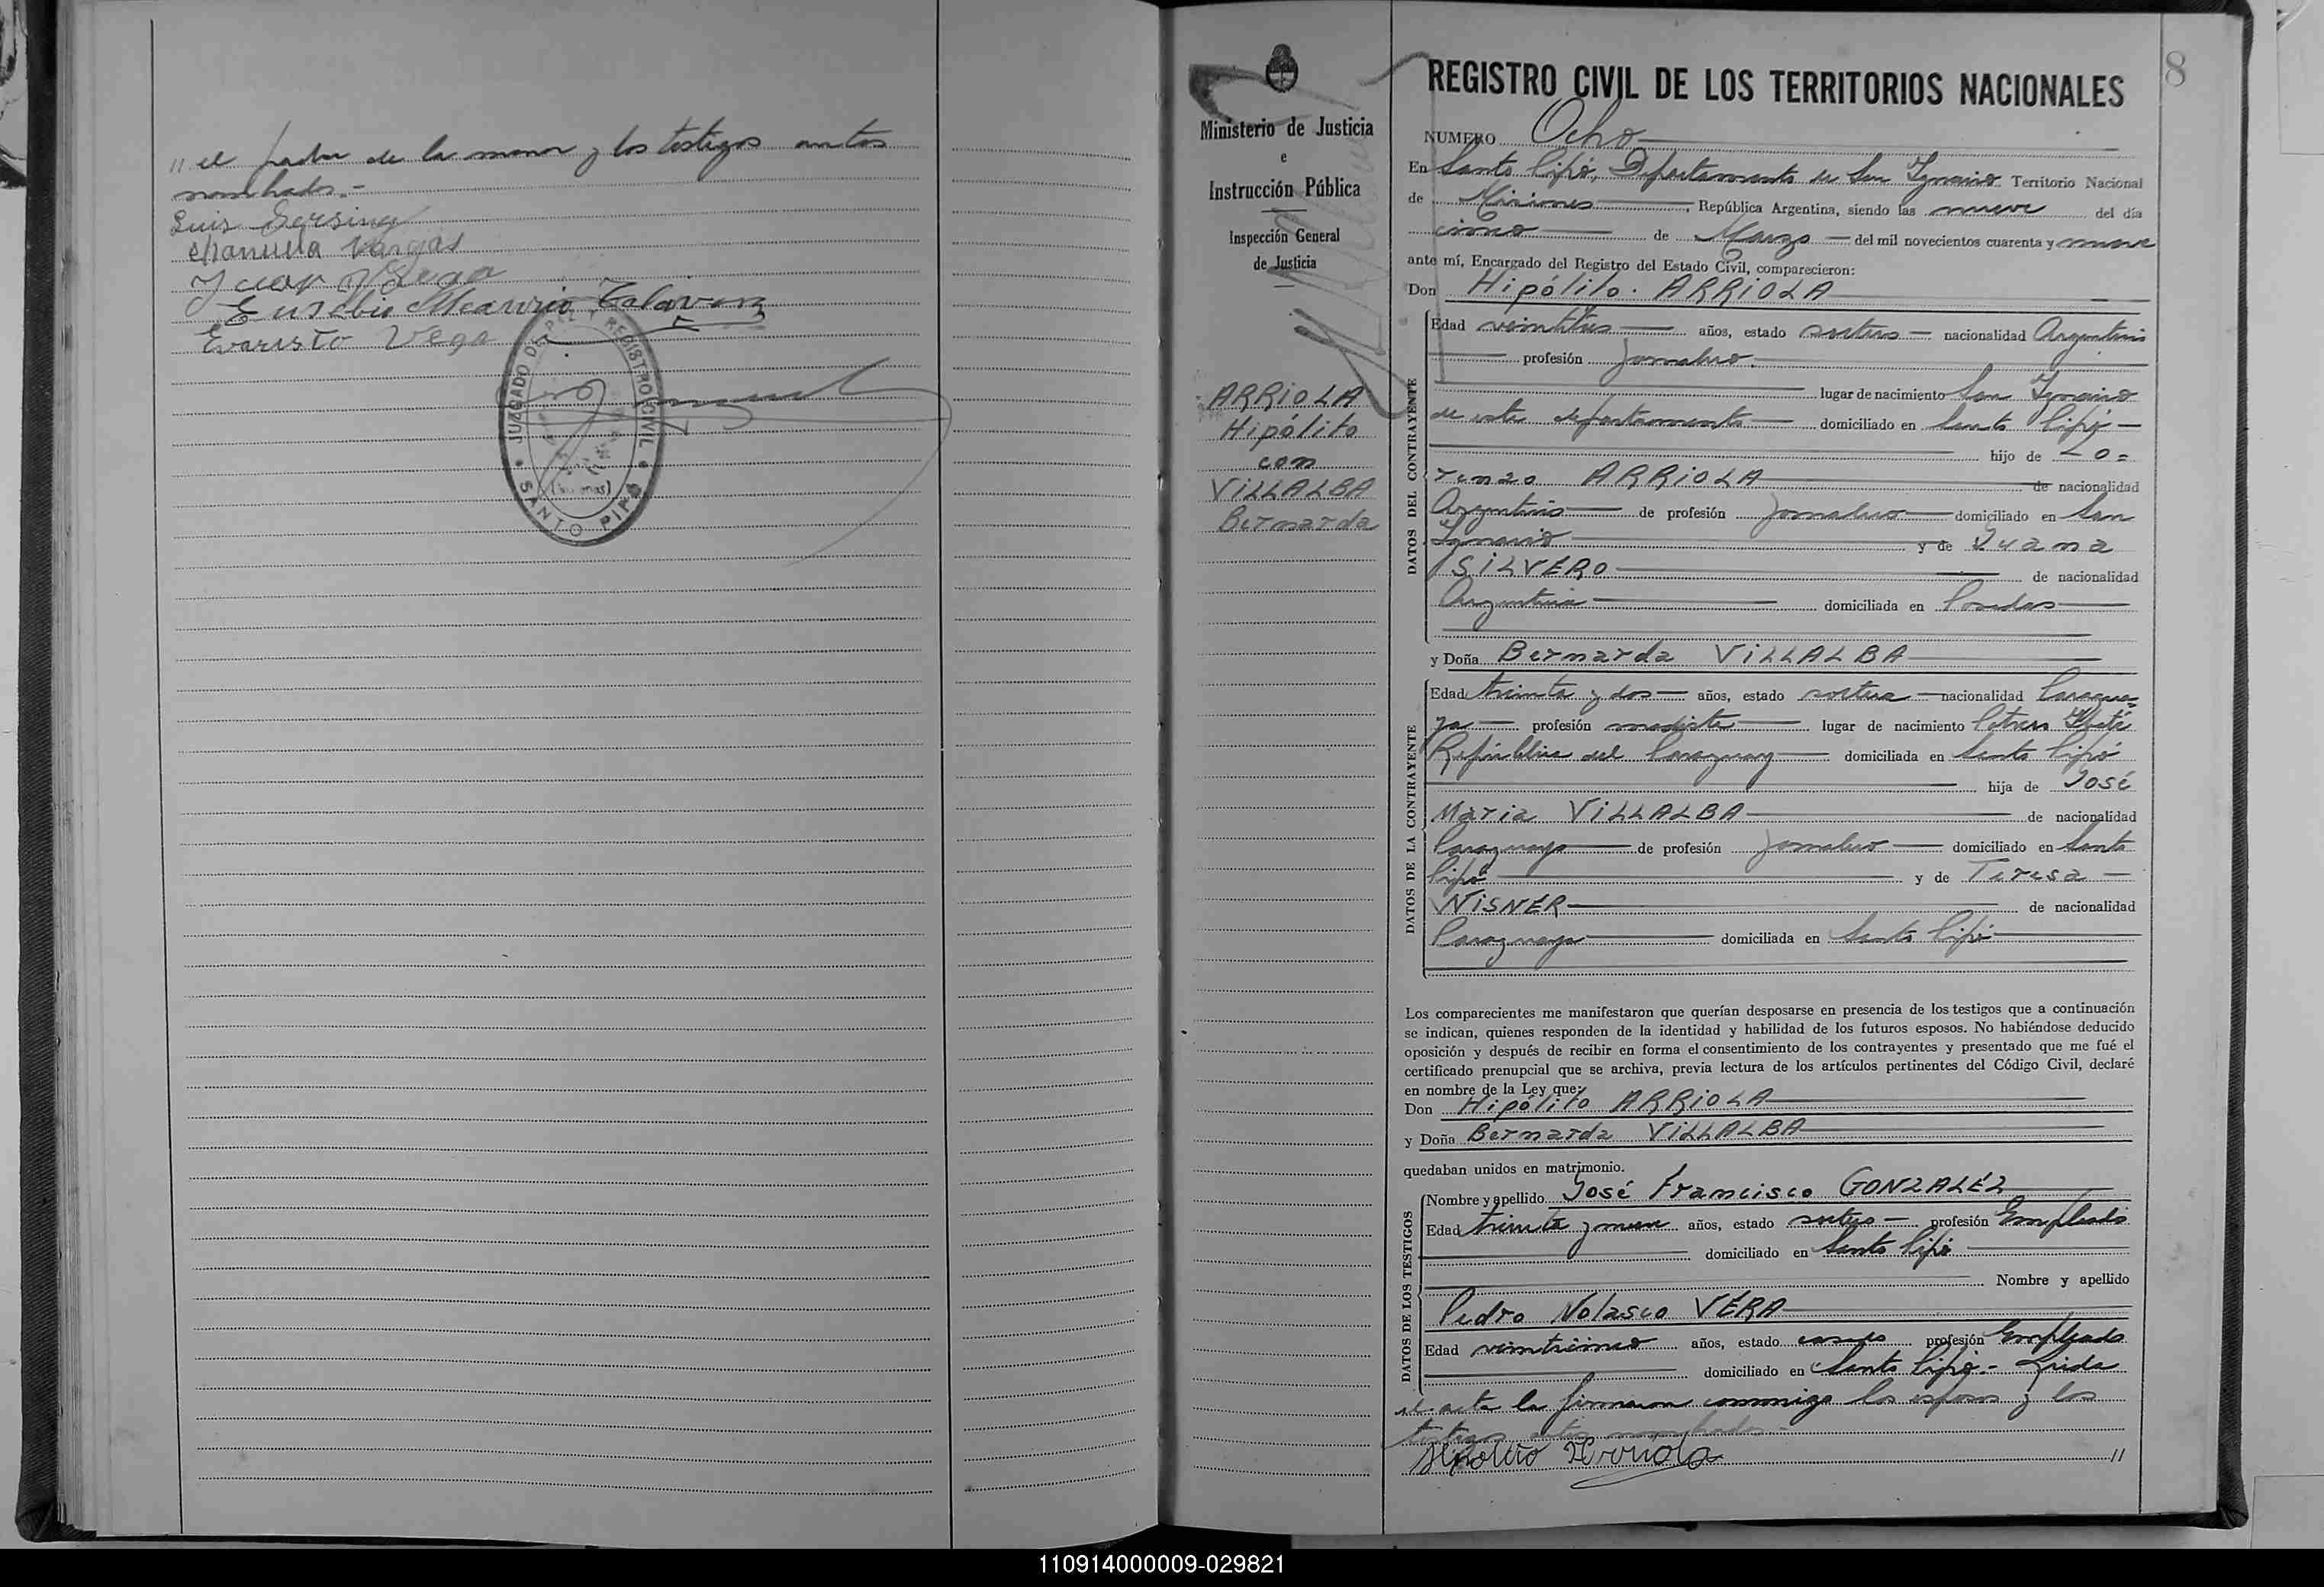 " el padre de la menor y los testigos antes
nombrados.-
Luis Gersing
Manuela Vargas
Juan Vega
Eusebio Mauricio Talavera
Evaristo Vega
JUZGADO DE PAZ Y REGISTRO CIVIL
(Misiones)
SANTO PIPÓ
8
Ministerio de Justicia
e
Instrucción Pública
Inspección General
de Justicia
ARRIOLA
Hipólito
con
VILLALBA
Bernarda
REGISTRO CIVIL DE LOS TERRITORIOS NACIONALES
NUMERO Ocho
En Santo Pipó, Departamento de San Ignacio Territorio Nacional
de Misiones, República Argentina, siendo las nueve del día
cinco de Marzo del mil novecientos cuarenta y nueve
ante mí, Encargado del Registro del Estado Civil, comparecieron:
Don Hipólito ARRIOLA
DATOS DEL CONTRAYENTE
Edad veintitres años, estado soltero nacionalidad Argentino
profesión Jornalero
lugar de nacimiento San Ignacio
de este departamento domiciliado en Santo Pipó
hijo de Lo=
renzo ARRIOLA de nacionalidad
Argentino de profesión Jornalero domiciliado en San
Ignacio y de Juana
SILVERO de nacionalidad
Argentina domiciliada en Posadas
y Doña Bernarda VILLALBA
DATOS DE LA CONTRAYENTE
Edad treinta y dos años, estado soltera nacionalidad Paragua=
ya profesión modista lugar de nacimiento
República del Paraguay domiciliada en Santo Pipó
hija de José
Maria VILLALBA de nacionalidad
Paraguayo de profesión Jornalero domiciliado en Santo
Pipó y de Teresa
NISNER de nacionalidad
Paraguaya domiciliada en Santo Pipó
Los comparecientes me manifestaron que querían desposarse en presencia de los testigos que a continuación
se indican, quienes responden de la identidad y habilidad de los futuros esposos. No habiéndose deducido
oposición y después de recibir en forma el consentimiento de los contrayentes y presentado que me fué el
certificado prenupcial que se archiva, previa lectura de los artículos pertinentes del Código Civil, declaré
en nombre de la Ley que:
Don Hipólito ARRIOLA
y Doña Bernarda VILLALBA
quedaban unidos en matrimonio.
DATOS DE LOS TESTIGOS
Nombre y apellido José Francisco GONZALÉZ
Edad treinta y nueve años, estado soltero profesión Empleado
domiciliado en Santo Pipó
Nombre y apellido
Pedro Nolasco VÉRA
Edad veinticinco años, estado casado profesión Empleado
domiciliado en Santo Pipó.- Leida
el acta la firmaron conmigo los esposos y los
testigos antes nombrados.-
Hipolito Arriola "
110914000009-029821